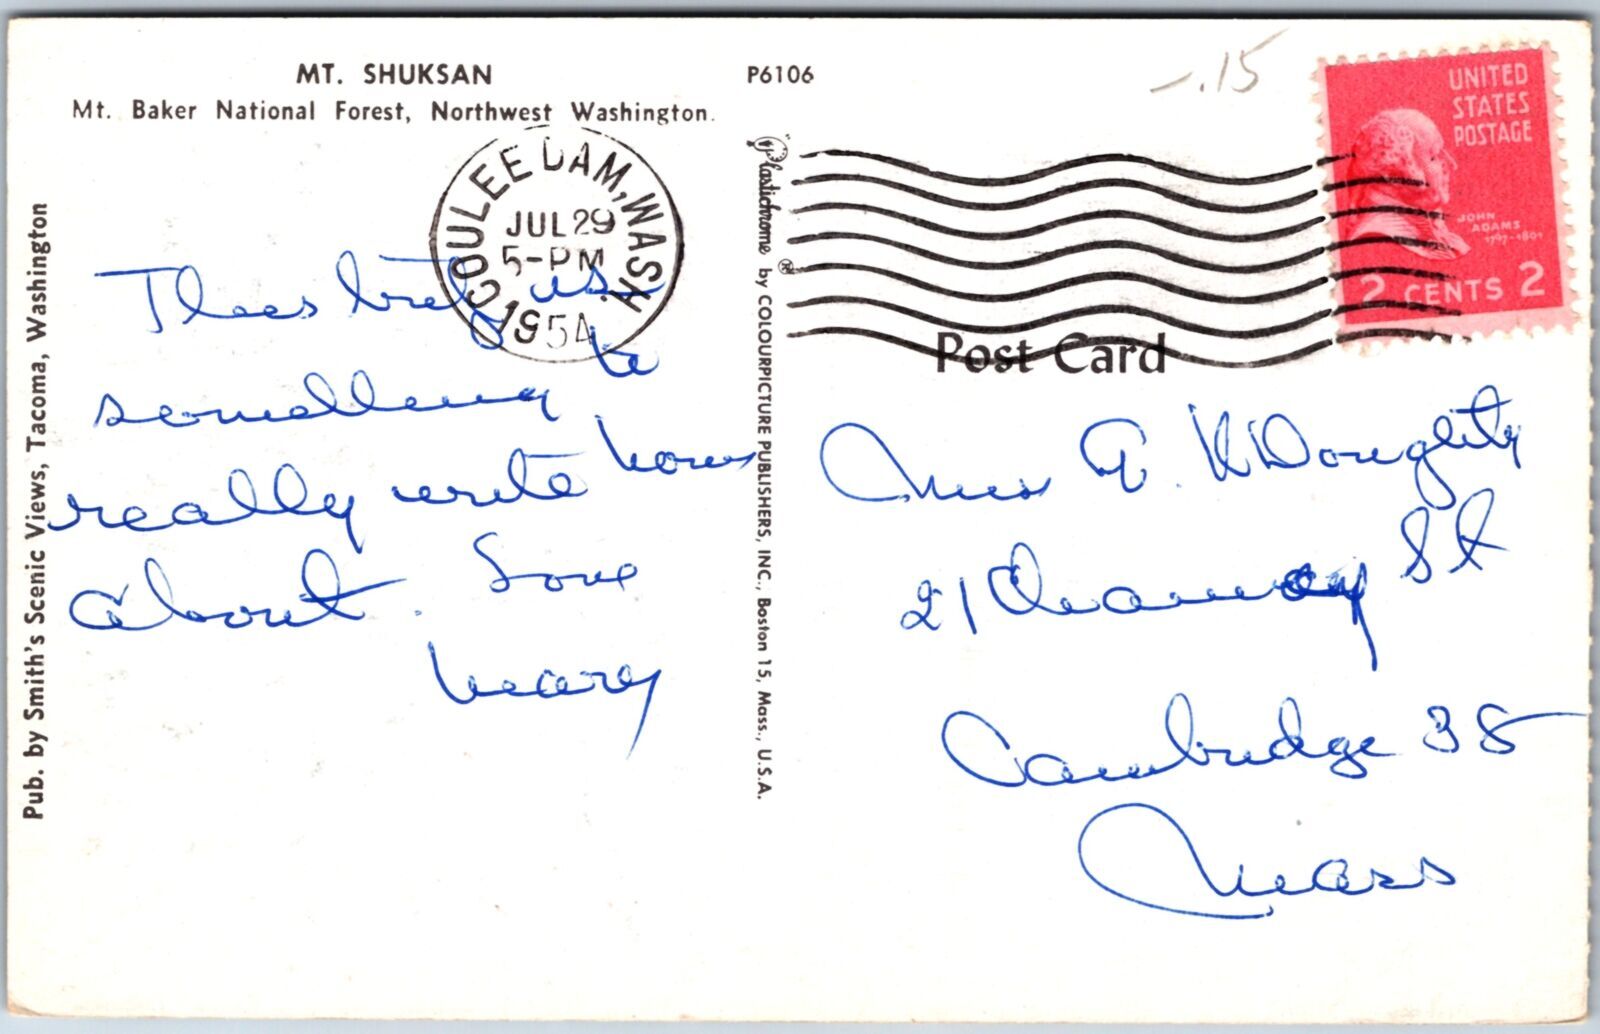 MT. SHUKSAN
Mt. Baker National Forest, Northwest Washington.
P6106
-.15
UNITED
STATES
POSTAGE
JOHN
ADAMS
1797-1801
2 CENTS 2
COULEE DAM, WASH.
JUL 29
5-PM
1954
Pub. by Smith's Scenic Views, Tacoma, Washington
"Plastichrome"® by COLOURPICTURE PUBLISHERS, INC., Boston 15, Mass., U.S.A.
Post Card
is
something to
really write home
about. Love
Mary
Miss
Doughty
21 St
Cambridge 38
Mass